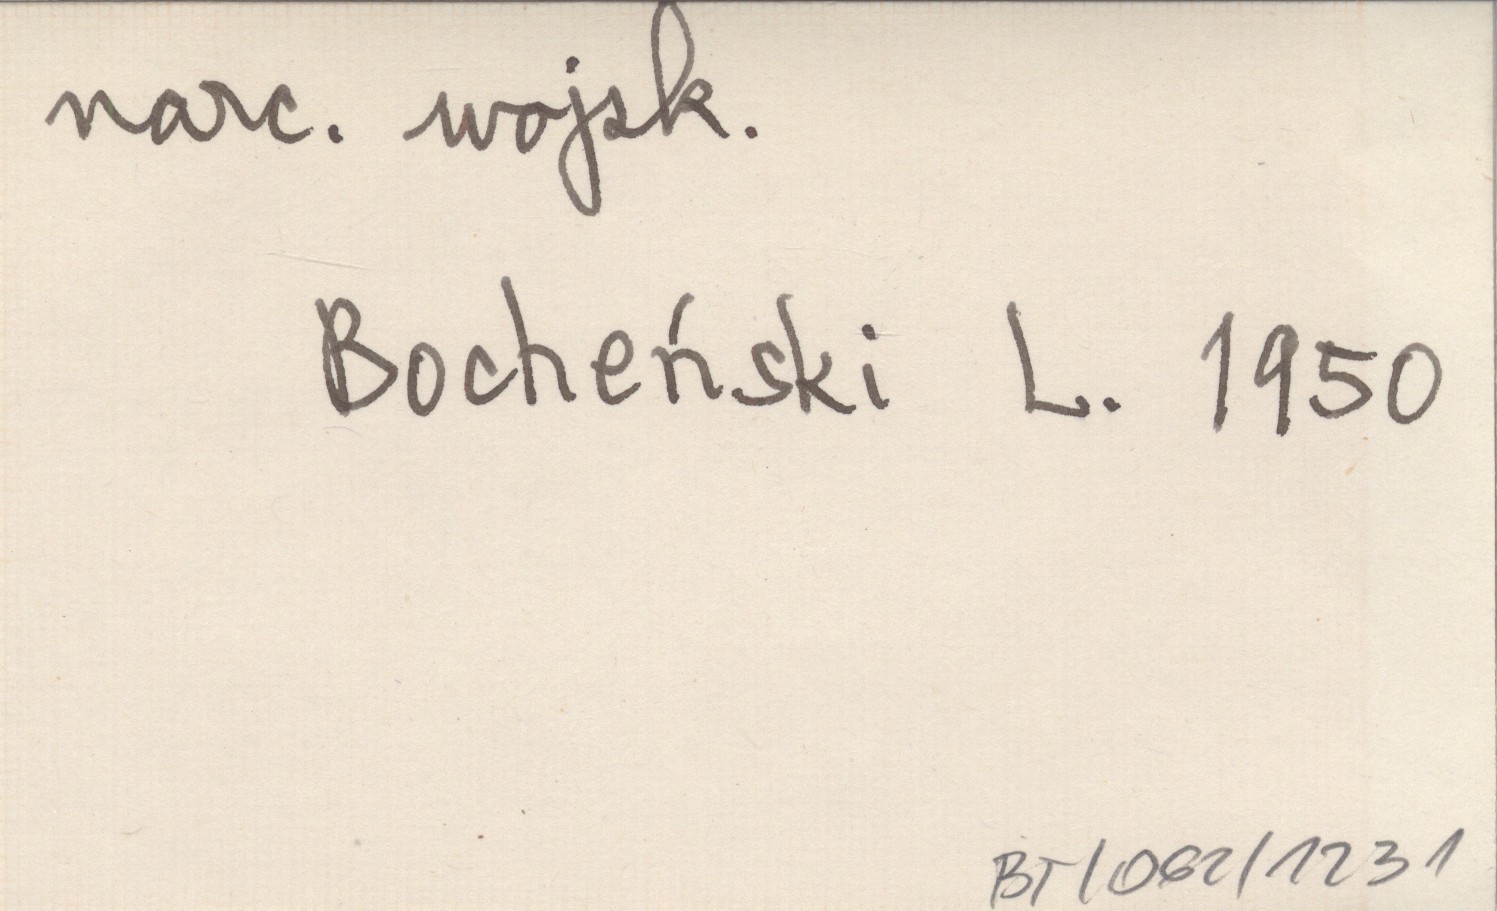 narc. wojsk.
Bocheński L. 1950
BT/062/1231